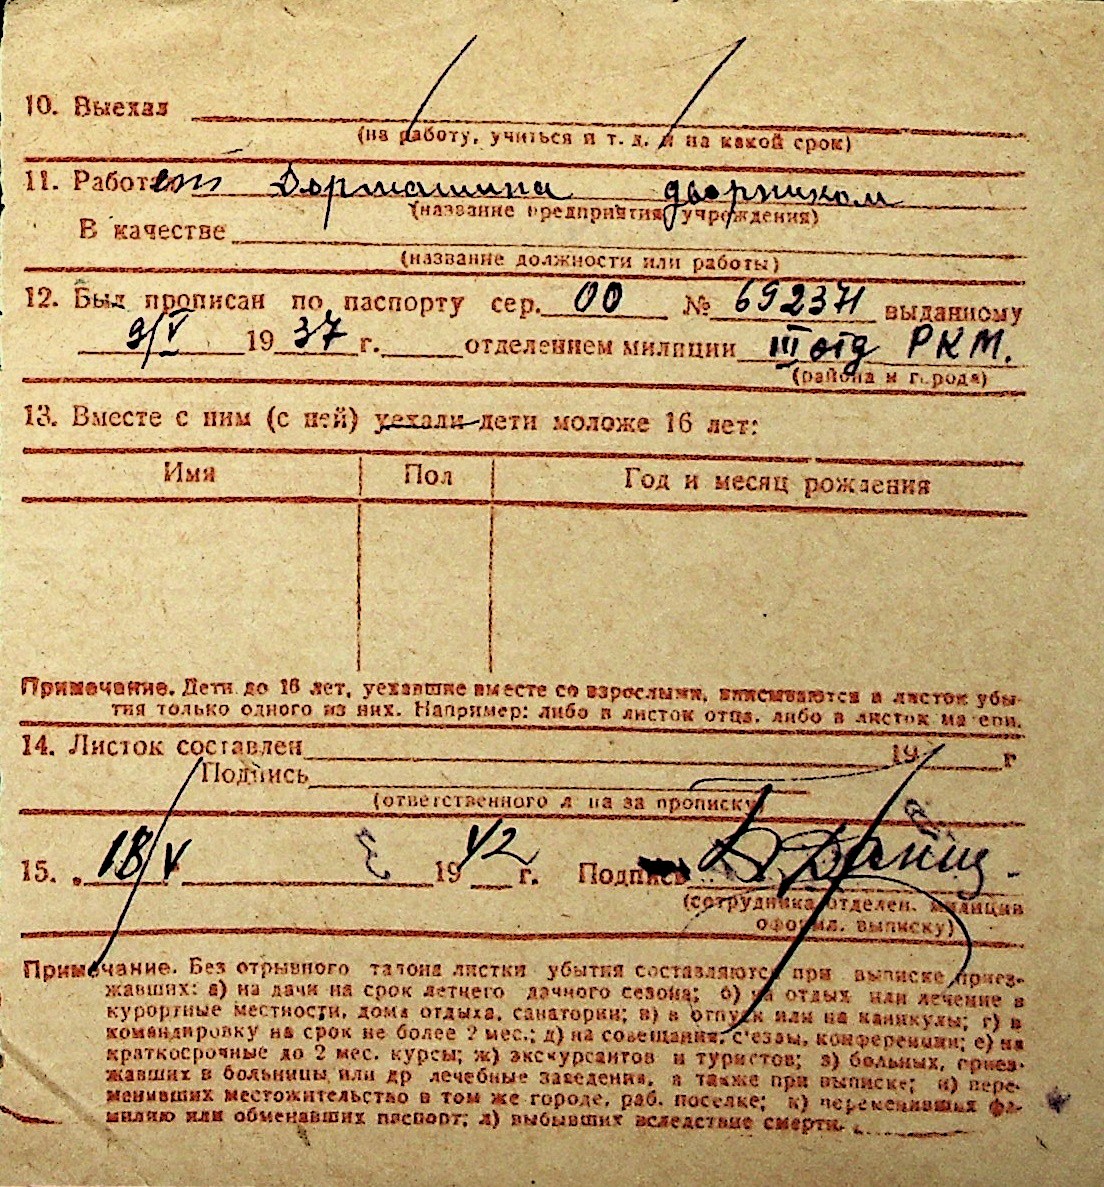 10. Выехал
(на работу, учиться и т. д. и на какой срок)
11. Работает дворником
(название предприятия, учреждения)
В качестве
(название должности или работы)
12. Был прописан по паспорту сер. 00 № 692371 выданному
9/V 1937 г. отделением милиции III отд РКМ.
(района и города)
13. Вместе с ним (с ней) уехали дети моложе 16 лет:
Имя Пол Год и месяц рождения
Примечание. Дети до 16 лет, уехавшие вместе со взрослыми, вписываются в листок убы-
тия только одного из них. Например: либо в листок отца, либо в листок матери.
14. Листок составлен 19 г
Подпись
(ответственного лица за прописку)
15. 18/V 1942 г. Подпись
(сотрудника отделен. милиции
оформл. выписку)
Примечание. Без отрывного талона листки убытия составляются при выписке приез-
жавших: а) на дачи на срок летнего дачного сезона; б) на отдых или лечение в
курортные местности, дома отдыха, санатории; в) в отпуск или на каникулы; г) в
командировку на срок не более 2 мес.; д) на совещания, с'езды, конференции; е) на
краткосрочные до 2 мес. курсы; ж) экскурсантов и туристов; з) больных, приез-
жавших в больницы или др лечебные заведения, а также при выписке; и) пере-
менивших местожительство в том же городе, раб. поселке; к) переменивших фа-
милию или обменавших паспорт; л) выбывших вследствие смерти.